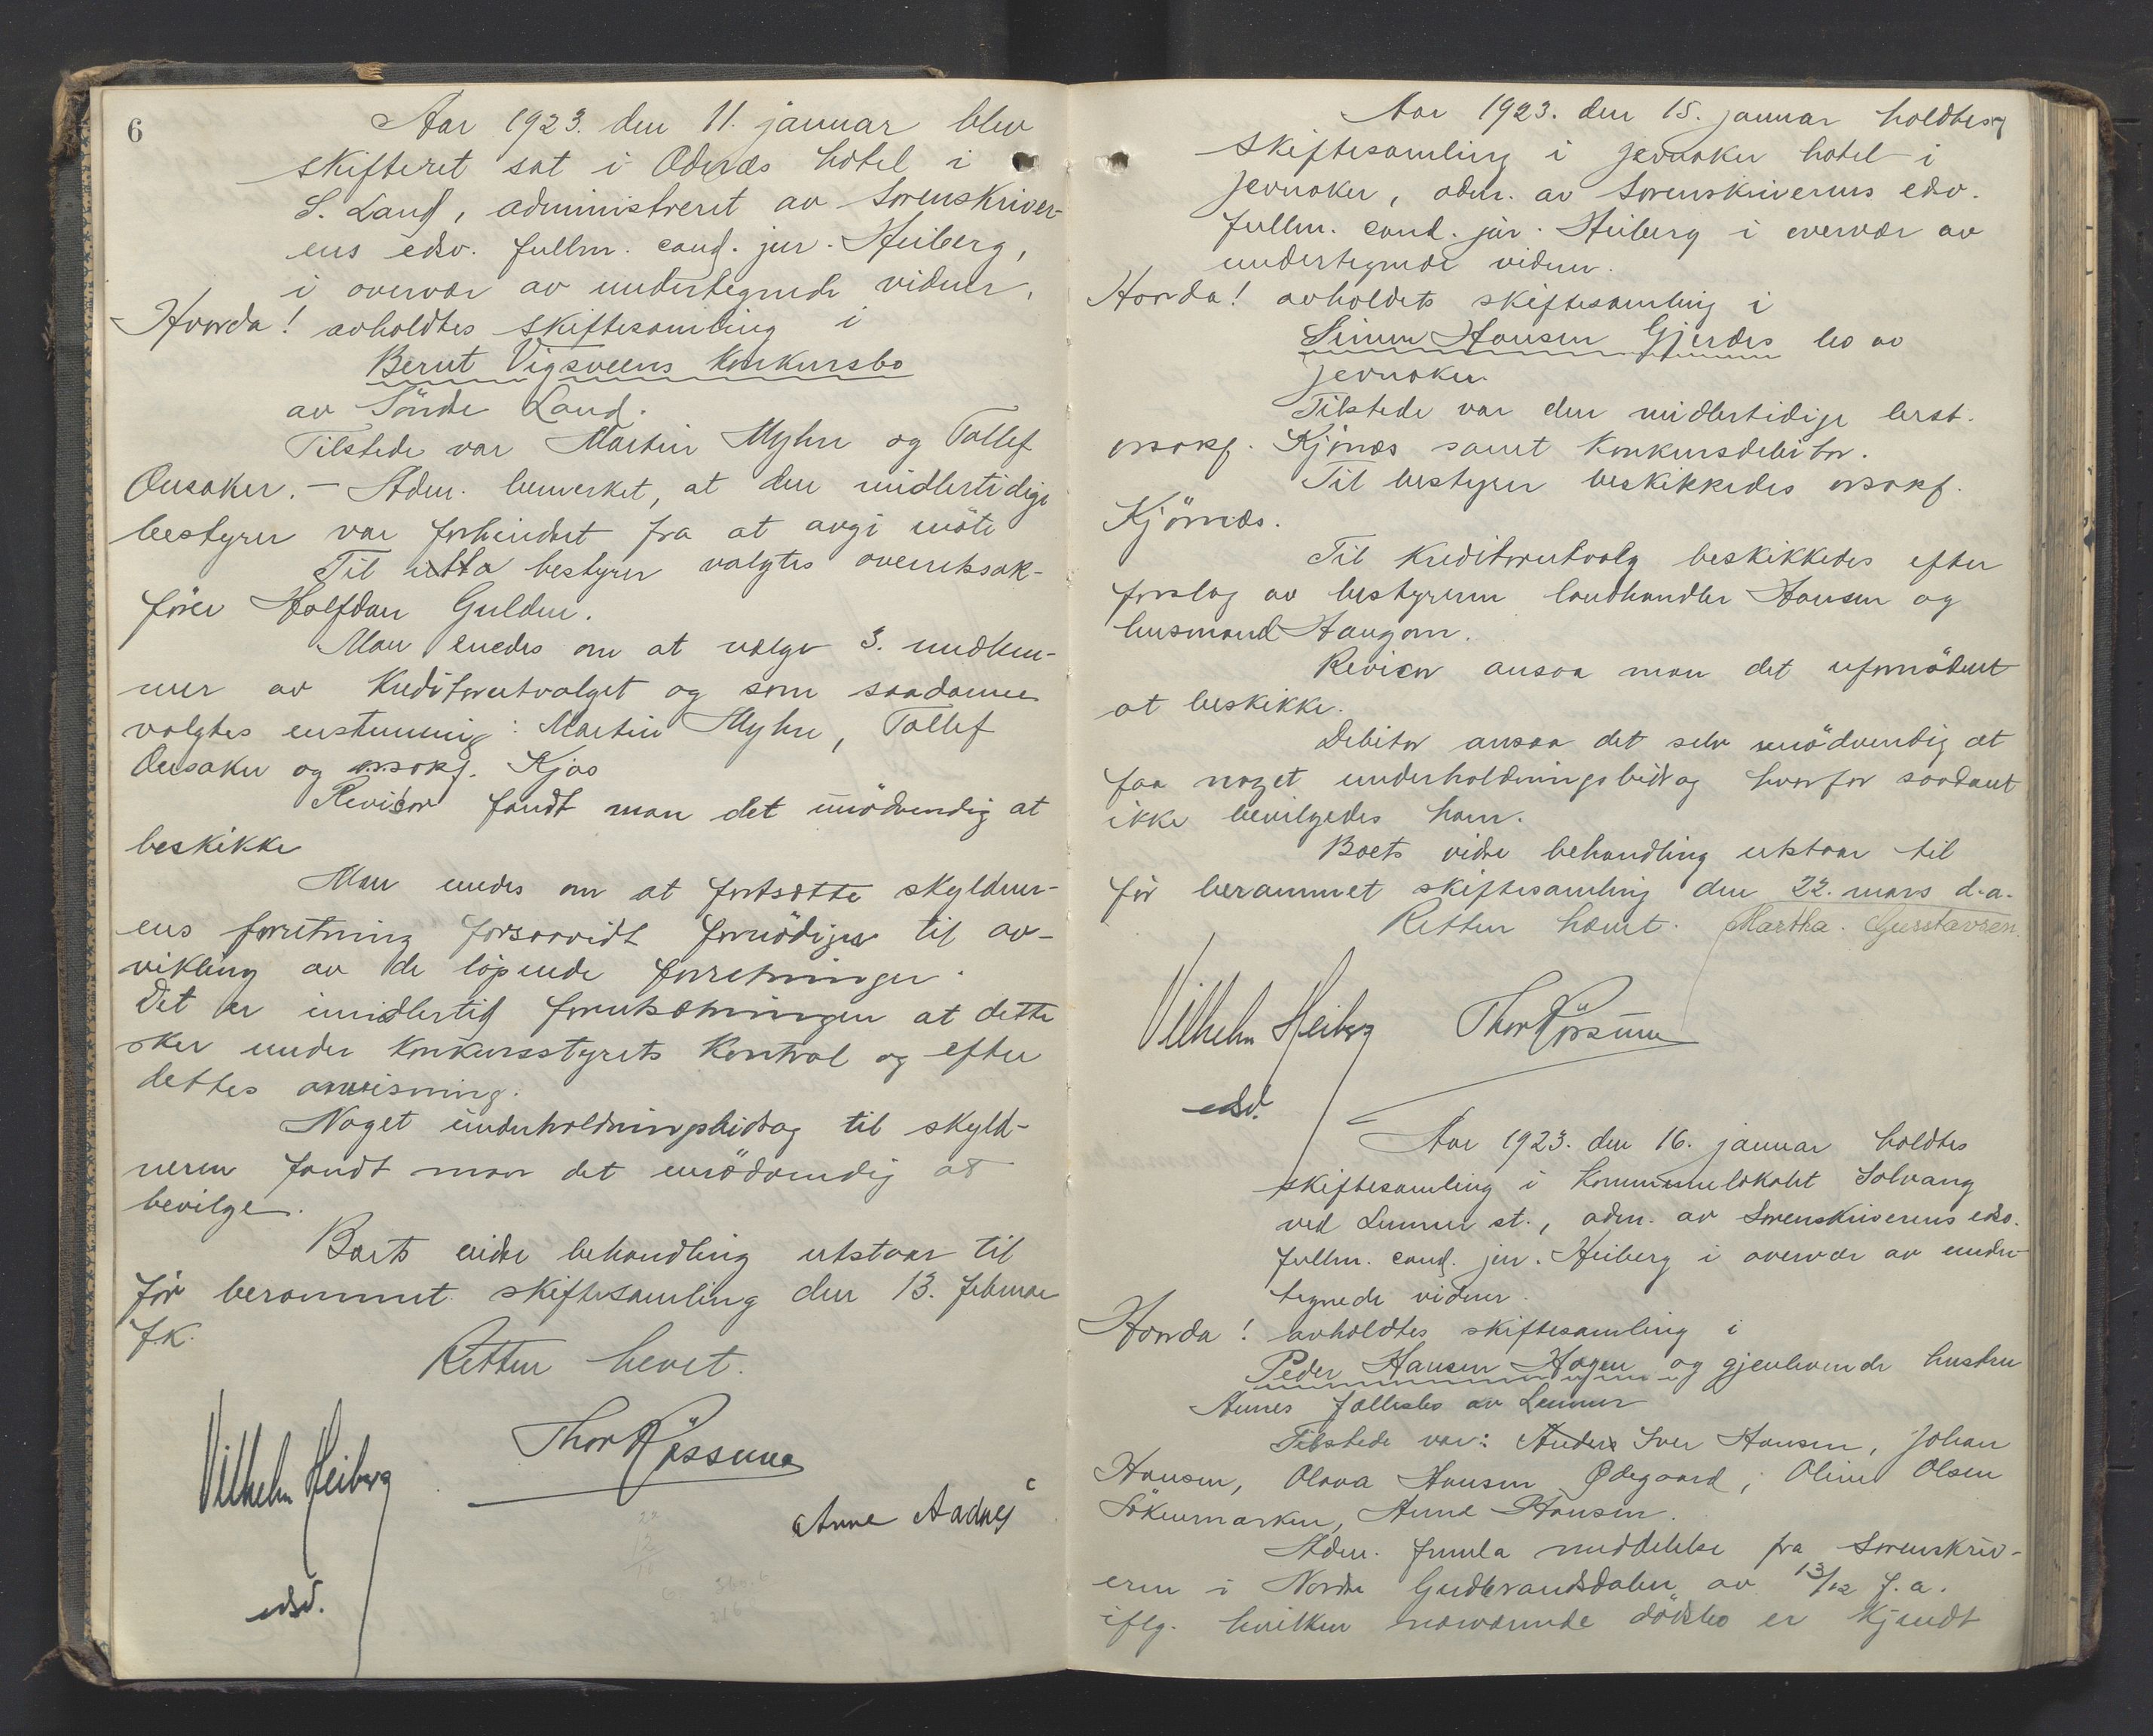 6
Aar 1923. den 11. januar blev
skifteret sat i Odnæs hotel i
S. Land, administreret av Sorenskriver-
ens edsv. fullm. cand. jur. Heiberg,
i overvær av undertegnede vidner.
Hvorda! avholdtes skiftesamling i
Bernt Vigsveens konkursbo
av Söndre Land.
Tilstede var Martin Myhre og Tollef
Onsaker. – Adm. bemerket, at den midlertidige
bestyrer var forhindret fra at avgi möte
Til bestyrer valgtes overretssak-
förer Halfdan Gulden.
Man enedes om at vælge 3. medlem-
mer av Kreditorutvalget og som saadanne
valgtes enstemmig: Martin Myhre, Tollef
Onsaker og o.r.sakf. Kjos
Revisor fandt man det unödvendig at
beskikke
Man enedes om at fortsætte skyldner-
ens forretning forsaavidt fornödiges til av-
vikling av de löpende forretninger.
Det er imidlertid forutsætningen at dette
sker under konkursstyrets kontrol og efter
dettes anvisning.
Noget underholdningsbidrag til skyld-
neren fandt man det unödvendig at
bevilge.
Boets videre behandling utstaar til
för berammet skiftesamling den 13. februar
f.k.
Retten hevet.
Vilhelm Heiberg
Thor Røssum
Anne Aadnes
edsv.
Aar 1923. den 15. januar holdtes
skiftesamling i Jevnaker hotel i
Jevnaker, adm. av Sorenskriverens edsv.
fullm. cand. jur. Heiberg i overvær av
undertegnede vidner.
Hvorda! avholdtes skiftesamling i
Simen Hansen Gjerdes bo av
Jevnaker.
Tilstede var den midlertidige best.
orsakf. Kjörnæs samt konkursdebitor.
Til bestyrer beskikkedes orsakf.
Kjörnæs.
Til Kreditorutvalg beskikkedes efter
forslag av bestyreren landhandler Hansen og
husmand Haugom.
Revisor ansaa man det ufornödent
at beskikke.
Debitor ansaa det selv unödvendig at
faa noget underholdningsbidrag hvorfor saadant
ikke bevilgedes ham.
Boets videre behandling utstaar til
för berammet skiftesamling den 22. mars d.a.
Retten hævet. Martha Gustavsen.
Vilhelm Heiberg Thor Røssum
edsv.
Aar 1923. den 16. januar holdtes
skiftesamling i kommunelokalet Solvang
ved Lunner st., adm. av Sorenskriverens edsv.
fullm. cand. jur. Heiberg i overvær av under-
tegnede vidner.
Hvorda! avholdtes skiftesamling i
Peder Hansen Hagen og gjenlevende hustru
Annes fællesbo av Lunner
Tilstede var: Anders Iver Hansen, Johan
Hansen, Olava Hansen Ødegaard, Oline Olsen
Anne Hansen.
Adm. fremla meddelelse fra Sorenskriv-
eren i Nordre Gudbrandsdalen av 13/12 f.a.
iflg. hvilken nærværende dödsbo er kjendt